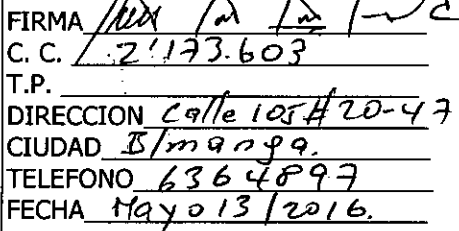 FIRMA
C. C. 2'173.603
T.P.
DIRECCION Calle 105 # 20-47
CIUDAD B/manga.
TELEFONO 6364897
FECHA Mayo 13/2016.